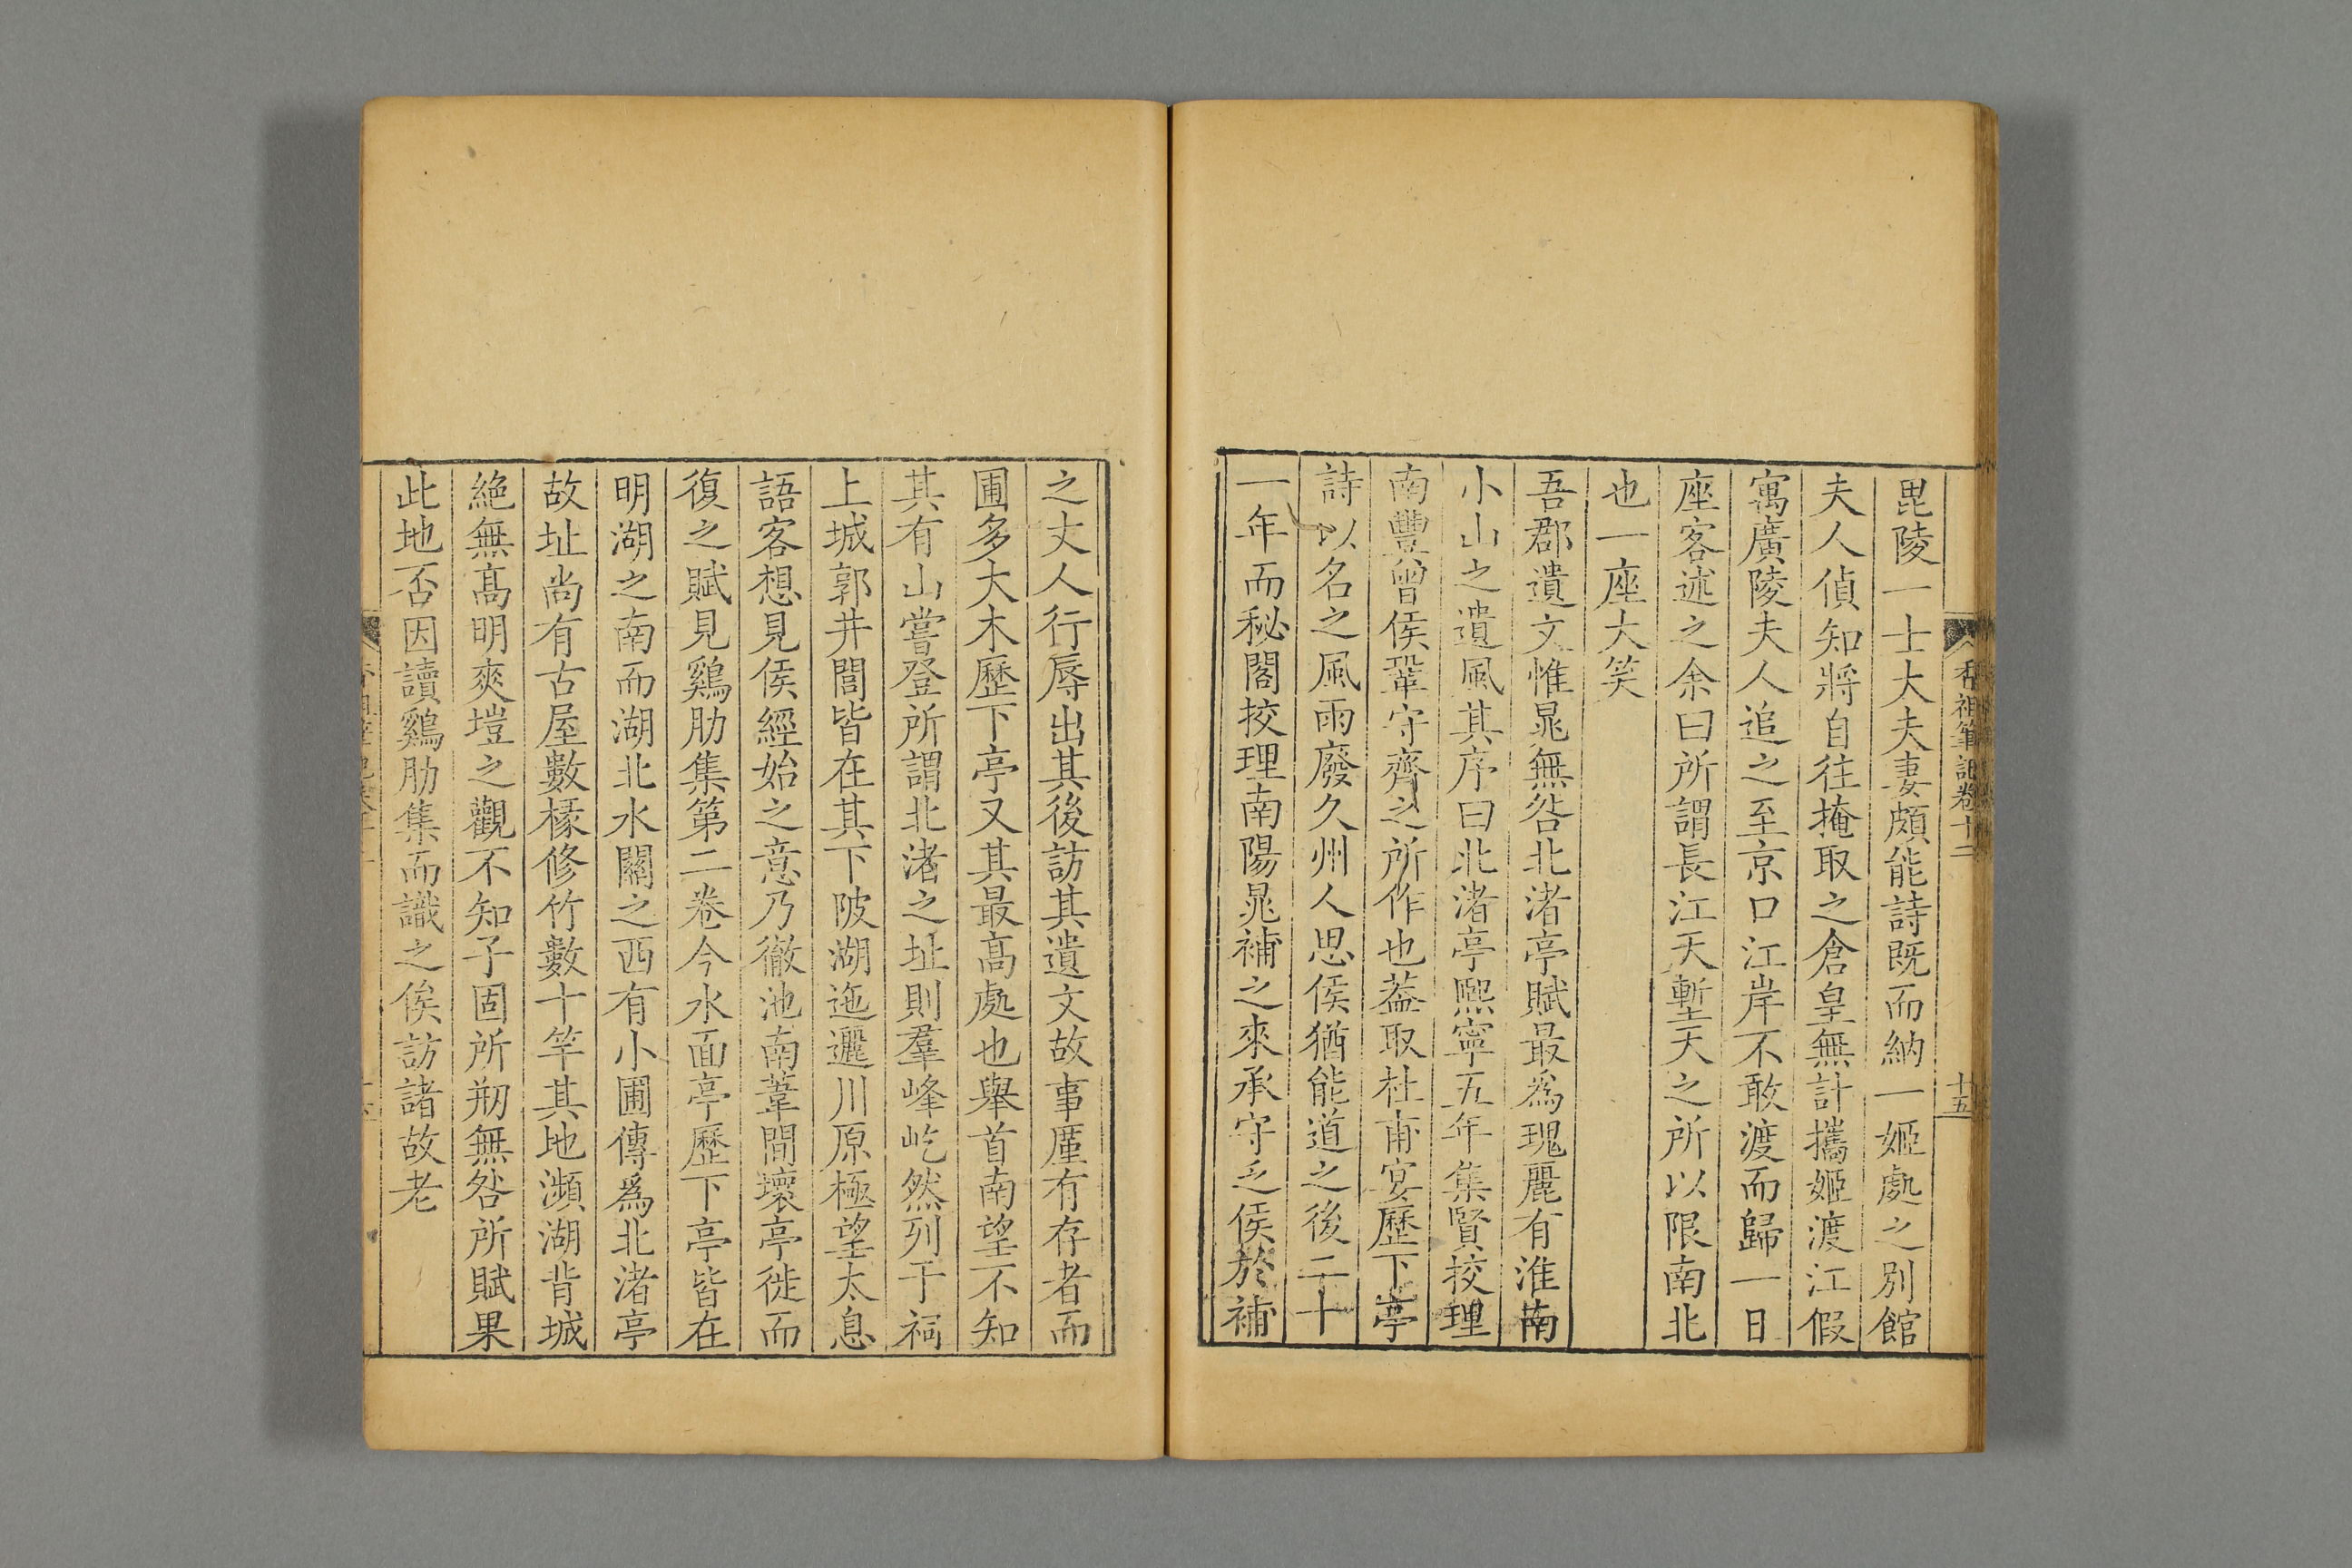 香祖筆記卷十二
十五
毘陵一士大夫妻頗能詩既而納一姬處之別館
夫人偵知將自往掩取之倉皇無計攜姬渡江假
寓廣陵夫人追之至京口江岸不敢渡而歸一日
座客述之余曰所謂長江天塹天之所以限南北
也一座大笑
吾郡遺文惟晁無咎北渚亭賦最為瑰麗有淮南
小山之遺風其序曰北渚亭熙寧五年集賢挍理
南豐曾侯鞏守齊之所作也葢取杜甫宴歷下亭
詩以名之風雨廢久州人思侯猶能道之後二十
一年而秘閣挍理南陽晁補之來承守乏侯於補
之丈人行辱出其後訪其遺文故事厪有存者而
圃多大木歷下亭又其最高處也舉首南望不知
其有山嘗登所謂北渚之址則羣峰屹然列于祠
上城郭井閭皆在其下陂湖迤邐川原極望太息
語客想見侯經始之意乃徹池南葦間壞亭徙而
復之賦見鷄肋集第二卷今水面亭歷下亭皆在
明湖之南而湖北水關之西有小圃傳爲北渚亭
故址尚有古屋數椽修竹數十竿其地瀕湖背城
絶無高明爽塏之觀不知子固所剏無咎所賦果
此地否因讀鷄肋集而識之俟訪諸故老